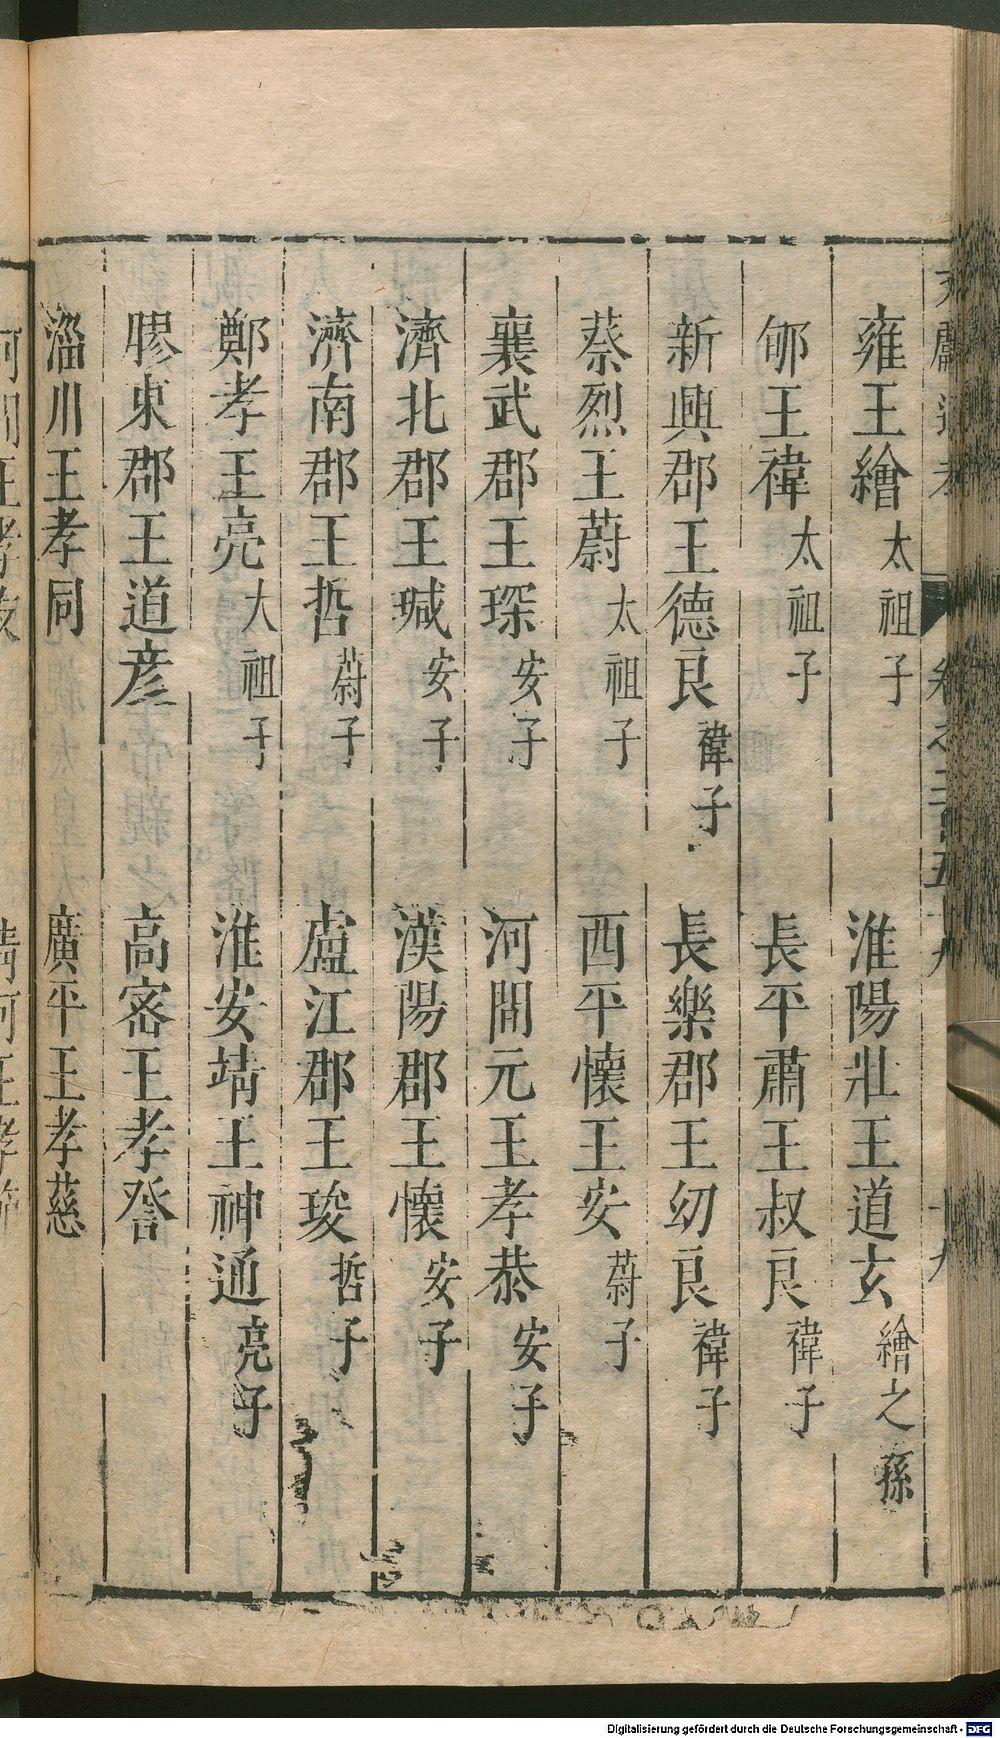 雍王繪太祖子 淮陽壯王道玄繪之孫
郇王禕太祖子 長平肅王叔良禕子
新興郡王德良禕子 長樂郡王幼良禕子
蔡烈王蔚太祖子 西平懷王安蔚子
襄武郡王琛安子 河間元王孝恭安子
濟北郡王瑊安子 漢陽郡王懷安子
濟南郡王哲蔚子 盧江郡王瑗哲子
鄭孝王亮大祖子 淮安靖王神通亮子
膠東郡王道彦 高密王孝詧
淄川王孝同 廣平王孝慈
Digitalisierung gefördert durch die Deutsche Forschungsgemeinschaft - DFG